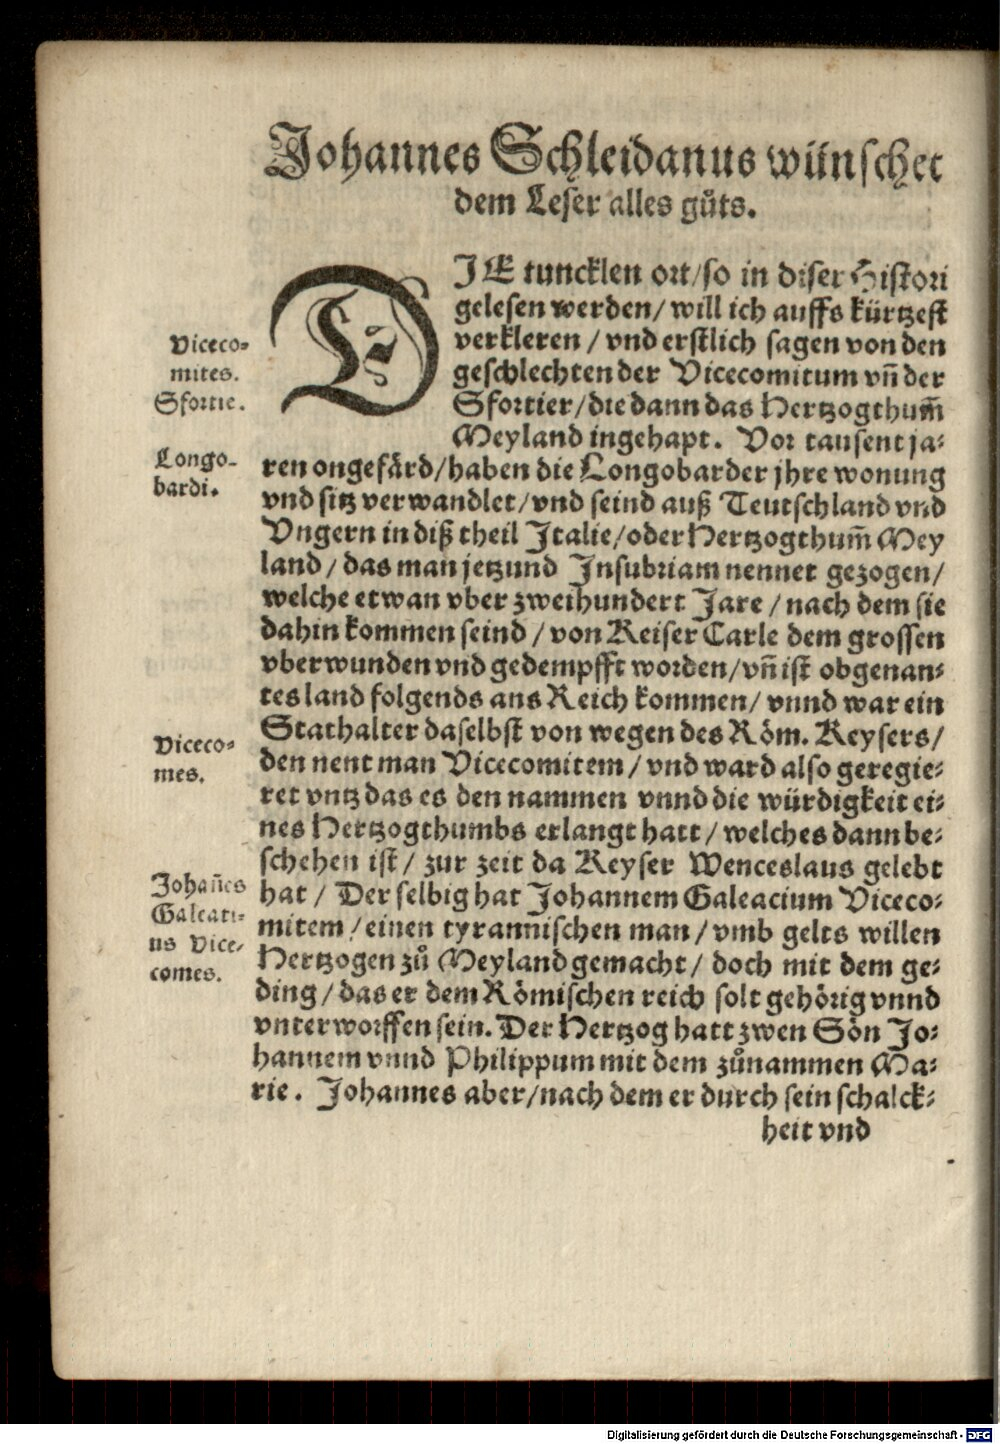 Johannes Schleidanus wünschet
dem Leser alles gůts.
DJE tuncklen ort/so in diser Histori
gelesen werden/ will ich auffs kürtzest
verkleren / vnd erstlich sagen von den
geschlechten der Vicecomitum vñ der
Sfortier/die dann das Hertzogthum̃
Meyland ingehapt. Vor tausent ja⸗
ren ongefärd/haben die Longobarder jhre wonung
vnd sitz verwandlet/vnd seind auß Teutschland vnd
Vngern in diß theil Italie/oder Hertzogthum̃ Mey
land / das man jetzund Insubriam nennet gezogen/
welche etwan vber zweihundert Jare / nach dem sie
dahin kommen seind / von Keiser Carle dem grossen
vberwunden vnd gedempfft worden/vñ ist obgenan⸗
tes land folgends ans Reich kommen/ vnnd war ein
Stathalter daselbst von wegen des Röm. Keysers/
den nent man Vicecomitem / vnd ward also geregie⸗
ret vntz das es den nammen vnnd die würdigkeit ei⸗
nes Hertzogthumbs erlangt hatt / welches dann be⸗
schehen ist / zur zeit da Keyser Wenceslaus gelebt
hat / Der selbig hat Johannem Galeacium Viceco⸗
mitem / einen tyrannischen man / vmb gelts willen
Hertzogen zů Meyland gemacht / doch mit dem ge⸗
ding / das er dem Römischen reich solt gehörig vnnd
vnterworffen sein. Der Hertzog hatt zwen Sön Jo⸗
hannem vnnd Philippum mit dem zůnammen Ma⸗
rie. Johannes aber/nach dem er durch sein schalck⸗
heit vnd
Viceco⸗
mites.
Sfortie.
Longo-
bardi.
Viceco⸗
mes.
Johañes
Galeati⸗
us Vice⸗
comes.
Digitalisierung gefördert durch die Deutsche Forschungsgemeinschaft - DFG